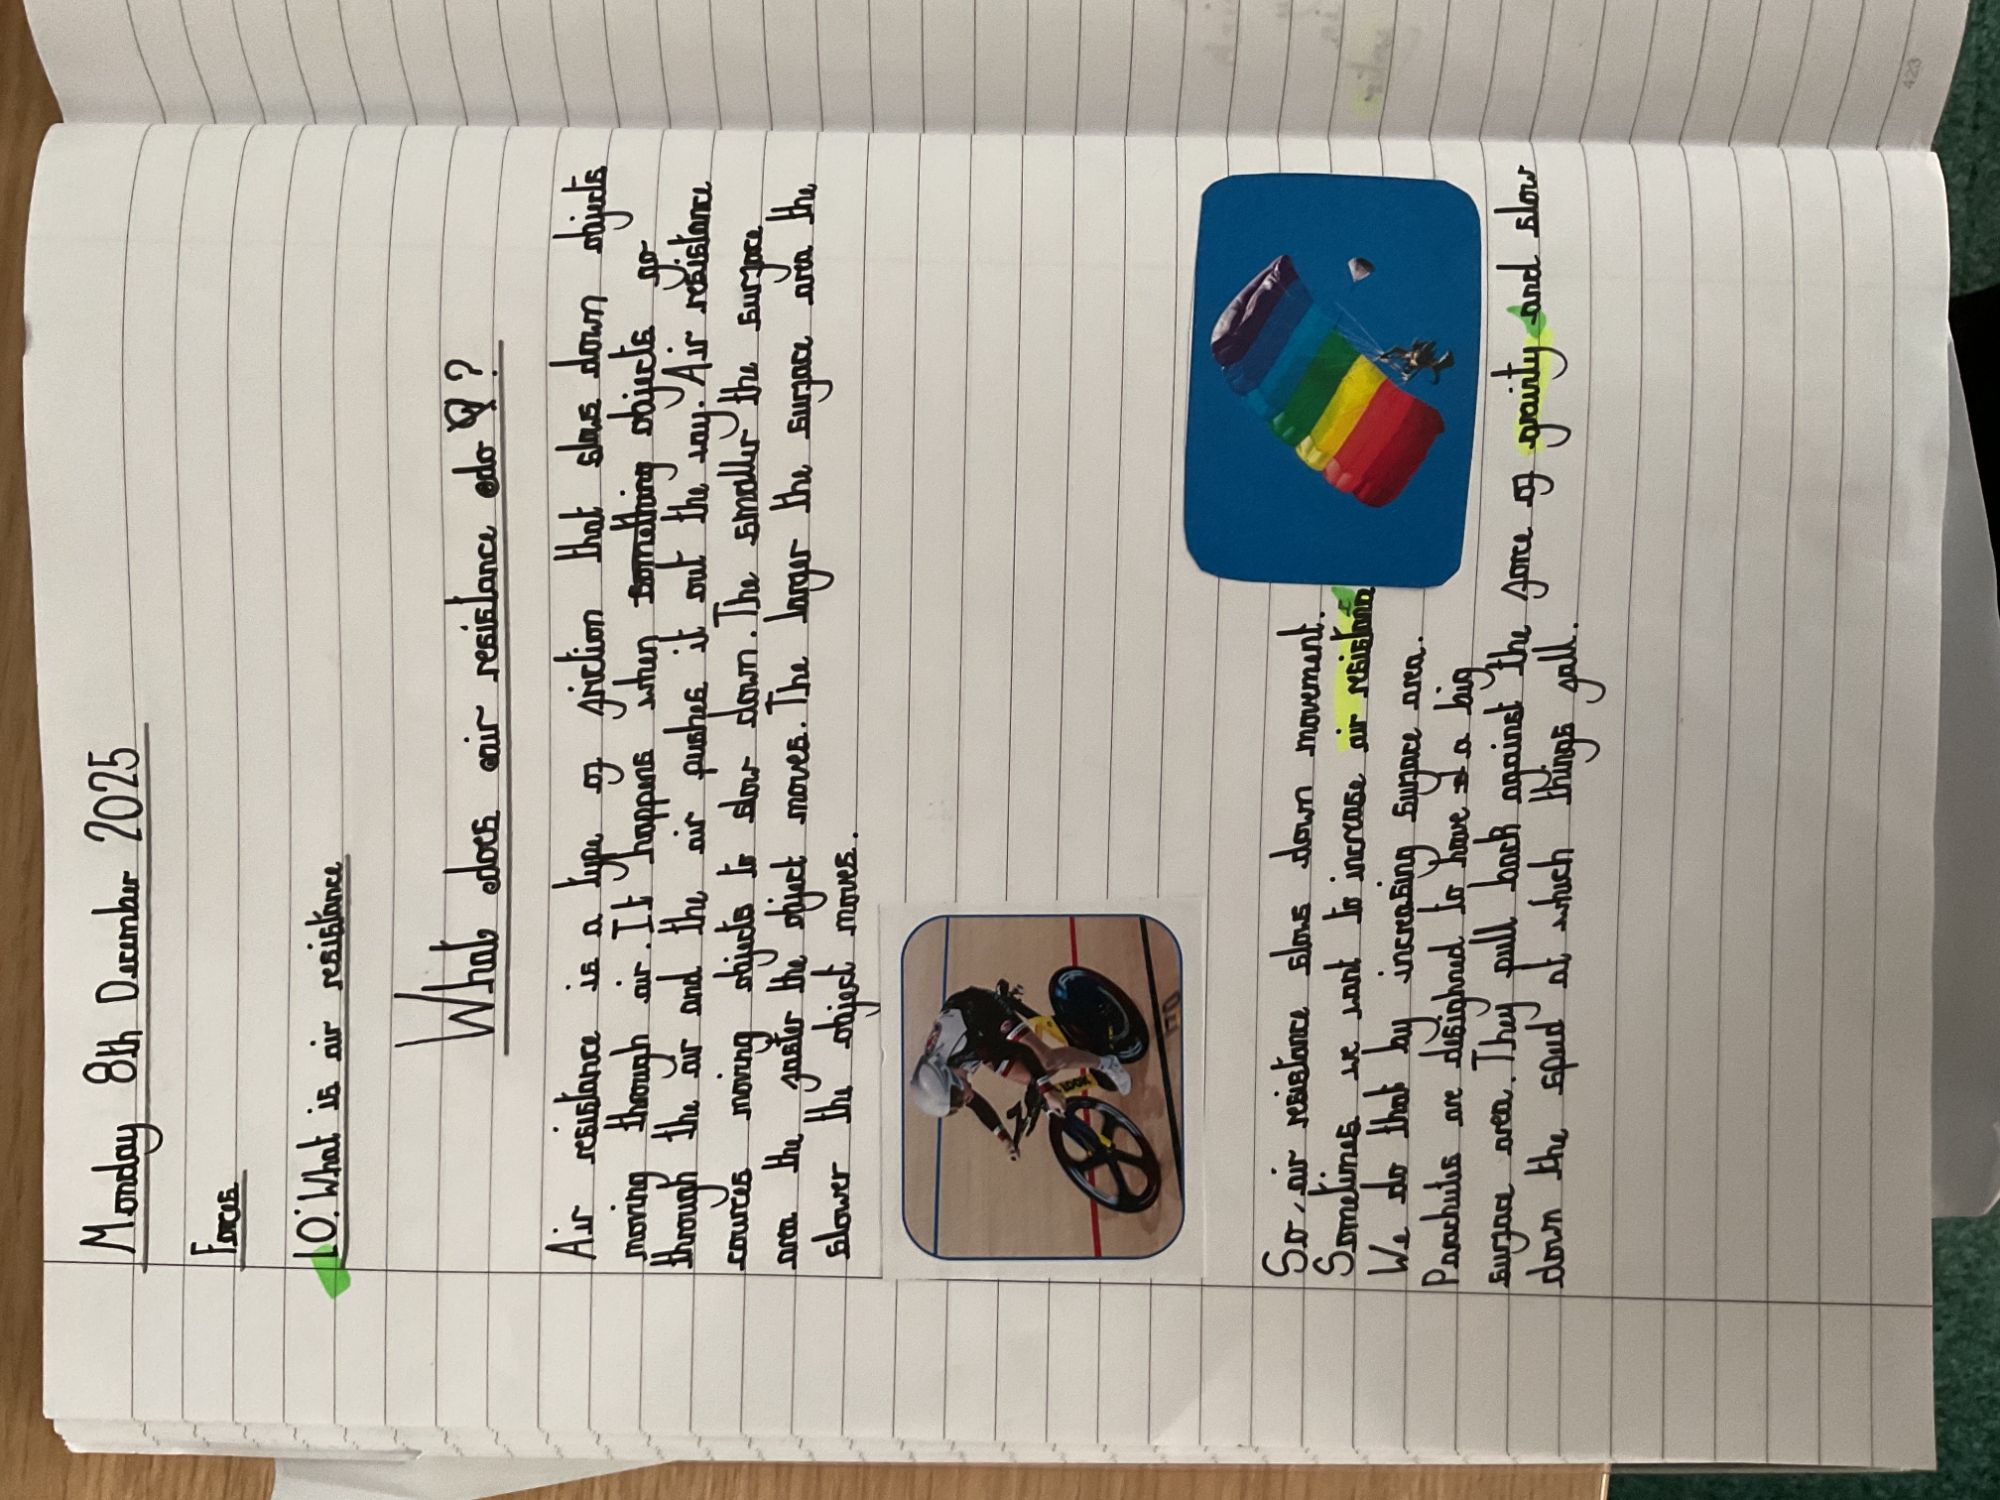 Monday 8th December 2025
Forces
LO: What is air resistance
What does air resistance do?
Air resistance is a type of friction that slows down objects
moving through air. It happens when something objects go
through the air and the air pushes it out the way. Air resistance
cources moving objects to slow down. The smaller the surface
area the faster the object moves. The larger the surface area the
slower the object moves.
So, air resistance slows down movement.
Sometimes we want to increase air resistance
We do that by increasing surface area.
Parachutes are designed to have a big
surface area. They pull back against the force of gravity and slow
down the speed at which things fall.
423